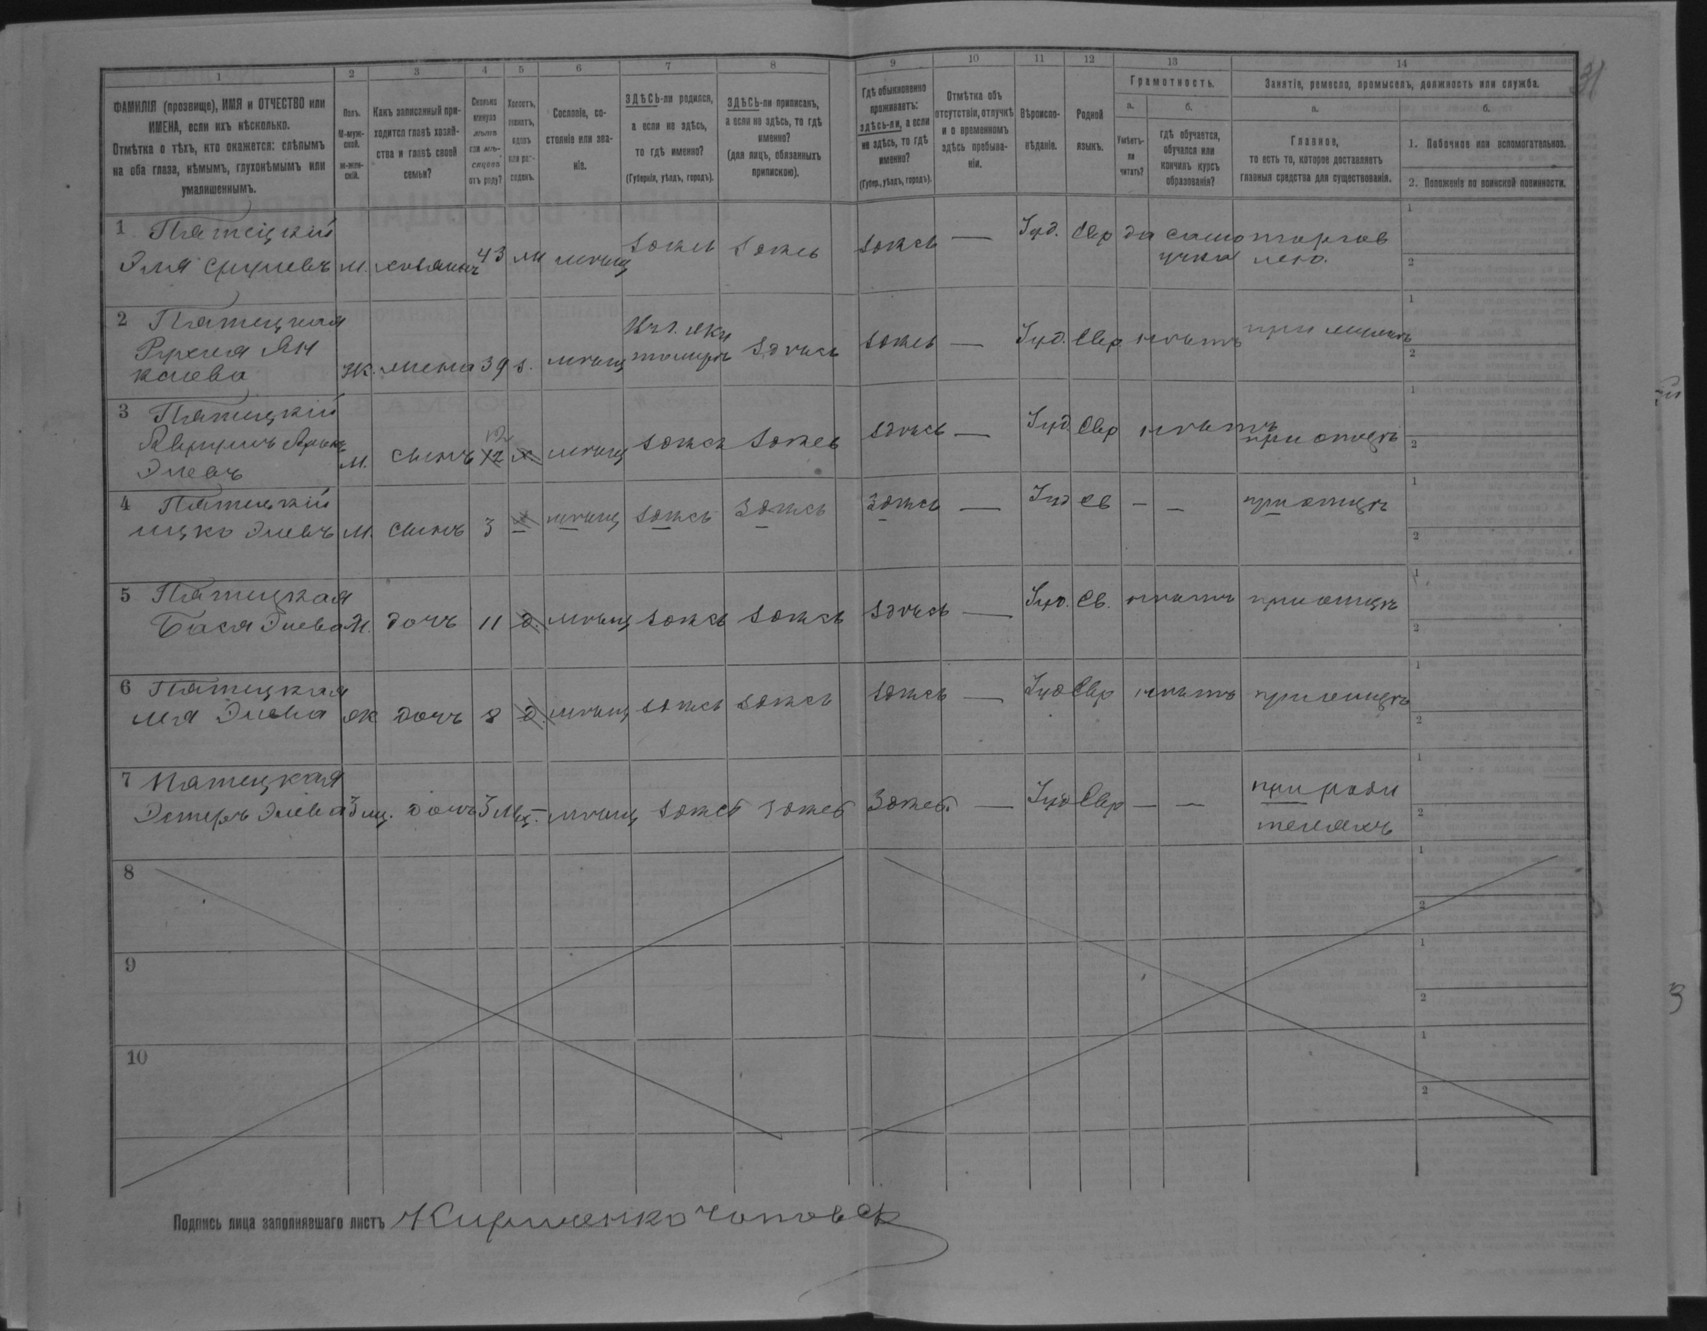 31
1
2
3
4
5
6
7
8
9
10
11
12
13
14
ФАМИЛІЯ (прозвище), ИМЯ и ОТЧЕСТВО или
ИМЕНА, если ихъ нѣсколько.
Отмѣтка о тѣхъ, кто окажется: слѣпымъ
на оба глаза, нѣмымъ, глухонѣмымъ или
умалишеннымъ.
Полъ.
М-муж-
ской.
Ж-жен-
скій.
Какъ записанный при-
ходится главѣ хозяй-
ства и главѣ своей
семьи?
Сколько
минуло
лѣтъ
или мѣ-
сяцевъ
отъ роду?
Холостъ,
женатъ,
вдовъ
или раз-
веденъ.
Сословіе, со-
стояніе или зва-
ніе.
ЗДѢСЬ-ли родился,
а если не здѣсь,
то гдѣ именно?
(Губернія, уѣздъ, городъ).
ЗДѢСЬ-ли приписанъ,
а если не здѣсь, то гдѣ
именно?
(для лицъ, обязанныхъ
припискою).
Гдѣ обыкновенно
проживаетъ:
здѣсь-ли, а если
не здѣсь, то гдѣ
именно?
(Губер., уѣздъ, городъ).
Отмѣтка объ
отсутствіи, отлучкѣ
и о временномъ
здѣсь пребыва-
ніи.
Вѣроиспо-
вѣданіе.
Родной
языкъ.
Грамотность.
а.
Умѣетъ-
ли
читать?
б.
гдѣ обучается,
обучался или
кончилъ курсъ
образованія?
Занятіе, ремесло, промыселъ, должность или служба.
а.
Главное,
то есть то, которое доставляетъ
главныя средства для существованія.
б.
1. Побочное или вспомогательное.
2. Положеніе по воинской повинности.
1 Пятецкій м. хозяинъ 43 мѣщ здѣсь здѣсь здѣсь — Іуд. Евр да само торгов
учка лею.
2 Пятецкая
Рухля Ян
келева ж. жена 39 з. мѣщ здѣсь здѣсь — Іуд. Евр нѣтъ при мужѣ
3 Пятецкій
Элевъ м. сынъ 12 мѣщ здѣсь здѣсь здѣсь — Іуд Евр нѣтъ при отцѣ
4 Пятецкій
Ицко Элевъ м. сынъ 3 мѣщ здѣсь здѣсь здѣсь — Іуд Ев — — при отцѣ
5 Пятецкая
Бася Элева ж. дочь 11 д. мѣщ здѣсь здѣсь здѣсь — Іуд. Ев. нѣтъ при отцѣ
6 Пятецкая
Элева ж дочь 8 д. мѣщ здѣсь здѣсь здѣсь — Іуд Евр нѣтъ при отцѣ
7 Пятецкая
Эстеръ Элева дочь 3 мц. мѣщ здѣсь здѣсь здѣсь — Іуд Евр — — при роди
теляхъ
8
9
10
Подпись лица заполнявшаго листъ